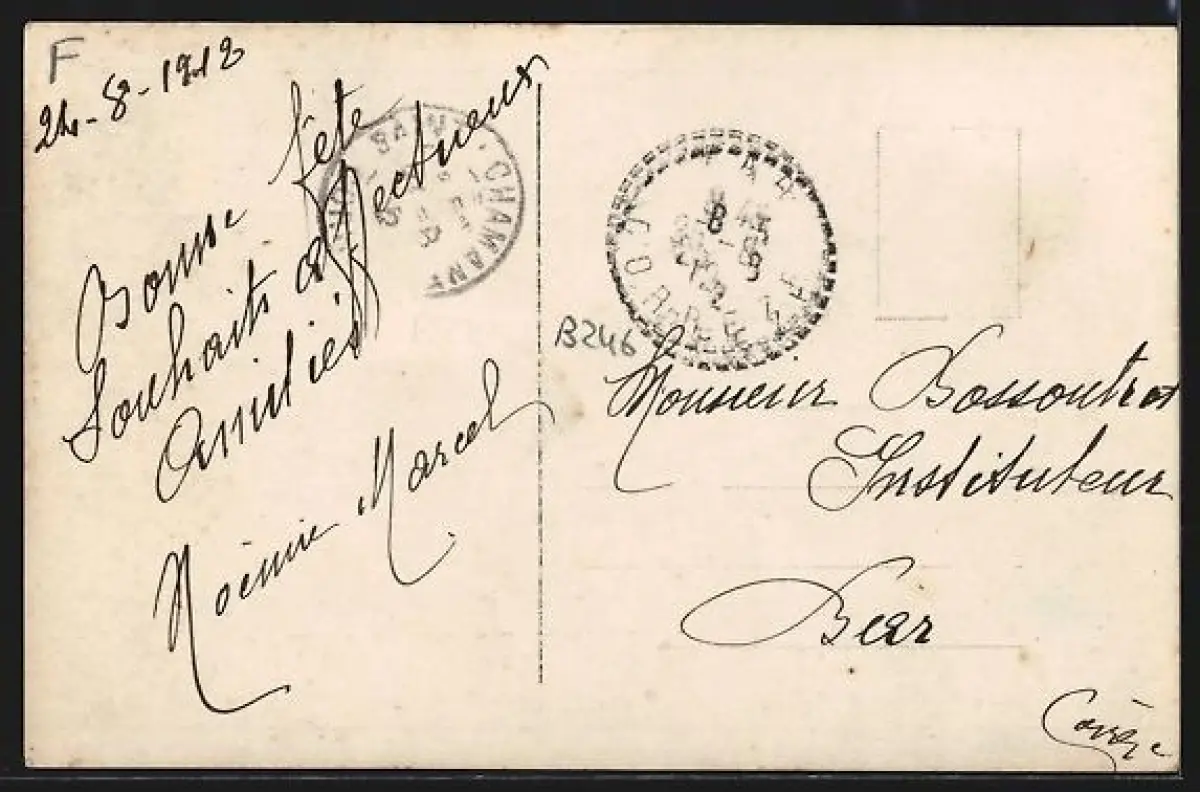 F
24-8-1912
Bonne fête
Souhaits affectueux
Amitiés
Noémie Marcel
SAINT-CHAMANT
CORREZE
B246
Monsieur Bossoutrot
Instituteur
Corrèze